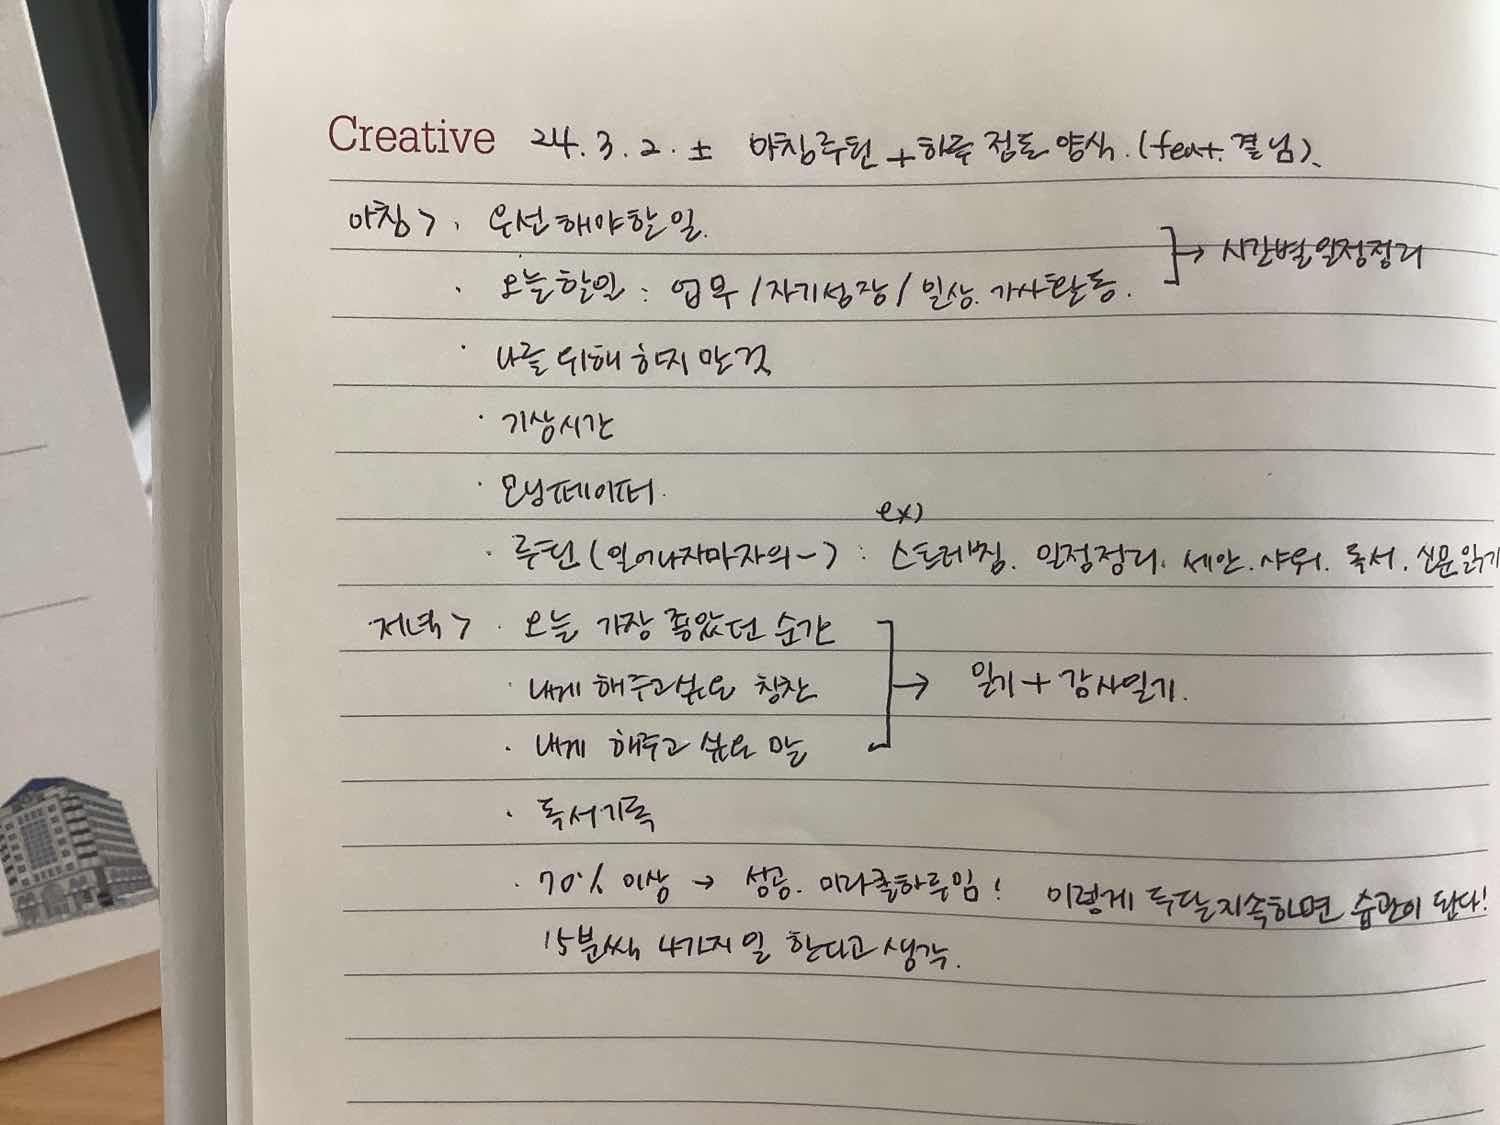 Creative 24. 3. 2. 土 아침루틴 + 하루 점검 양식. (feat. 결님).
아침> · 우선 해야할 일.
· 오늘할일 : 업무 / 자기성장 / 일상. 가사활동. → 시간별일정정리
· 나를 위해 하지 않을 것
· 기상시간
· 모닝페이퍼.
ex)
· 루틴 (일어나자마자의~) : 스트레칭. 일정정리. 세안. 샤워. 독서. 신문읽기
저녁> · 오늘 가장 좋았던 순간
· 내게 해주고싶은 칭찬 → 일기 + 감사일기.
· 내게 해주고 싶은 말
· 독서기록
· 70% 이상 → 성공. 미라클하루임! 이렇게 두달지속하면 습관이 된다!
15분씩 4가지 일 한다고 생각.